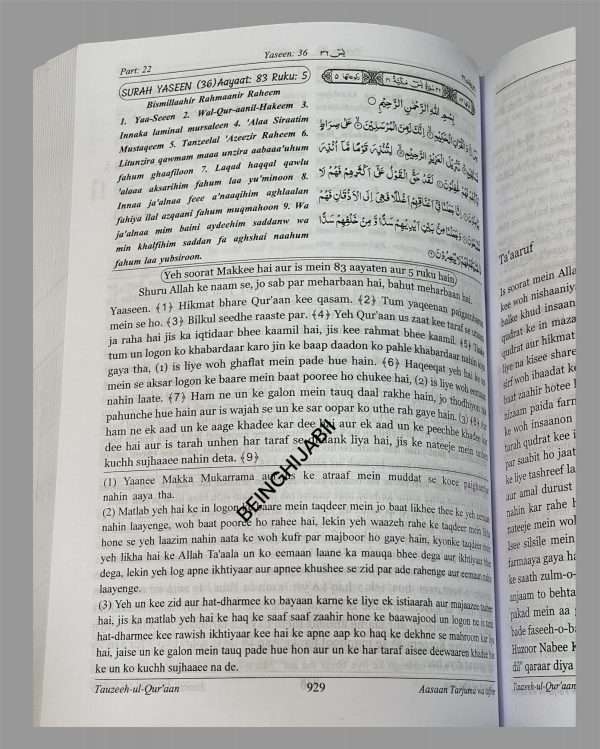 Part: 22
Yaseen: 36
يٰسٓ ٣٦
SURAH YASEEN (36) Aayaat: 83 Ruku: 5
Bismillaahir Rahmaanir Raheem
1. Yaa-Seeen 2. Wal-Qur-aanil-Hakeem 3.
Innaka laminal mursaleen 4. 'Alaa Siraatim
Mustaqeem 5. Tanzeelal 'Azeezir Raheem 6.
Litunzira qawmam maaa unzira aabaaa'uhum
fahum ghaafiloon 7. Laqad haqqal qawlu
'alaaa aksarihim fahum laa yu'minoon 8.
Innaa ja'alnaa feee a'naaqihim aghlaalan
fahiya ilal azqaani fahum muqmahoon 9. Wa
ja'alnaa mim baini aydeehim saddanw wa
min khalfihim saddan fa aghshai naahum
fahum laa yubsiroon.
بِسْمِ اللهِ الرَّحْمٰنِ الرَّحِيْمِ
وَالْقُرْاٰنِ الْحَكِيْمِ اِنَّكَ لَمِنَ الْمُرْسَلِيْنَ عَلٰى صِرَاطٍ
تَنْزِيْلَ الْعَزِيْزِ الرَّحِيْمِ لِتُنْذِرَ قَوْمًا مَّاۤ اُنْذِرَ
لَقَدْ حَقَّ الْقَوْلُ عَلٰۤى اَكْثَرِهِمْ فَهُمْ لَا
اِنَّا جَعَلْنَا فِيْۤ اَعْنَاقِهِمْ اَغْلٰلًا فَهِيَ اِلَى الْاَذْقَانِ فَهُمْ
وَجَعَلْنَا مِنْۢ بَيْنِ اَيْدِيْهِمْ سَدًّا وَّ مِنْ خَلْفِهِمْ سَدًّا
فَهُمْ لَا يُبْصِرُوْنَ
Yeh soorat Makkee hai aur is mein 83 aayaten aur 5 ruku hain
Shuru Allah ke naam se, jo sab par meharbaan hai, bahut meharbaan hai.
Yaaseen. {1} Hikmat bhare Qur'aan kee qasam. {2} Tum yaqeenan paigambaron
mein se ho. {3} Bilkul seedhe raaste par. {4} Yeh Qur'aan us zaat kee taraf se utaara
ja raha hai jis ka iqtidaar bhee kaamil hai, jis kee rahmat bhee kaamil. {5} Taake
tum un logon ko khabardaar karo jin ke baap daadon ko pahle khabardaar nahin kiya
gaya tha, (1) is liye woh ghaflat mein pade hue hain. {6} Haqeeqat yeh hai ke un
mein se aksar logon ke baare mein baat pooree ho chukee hai, (2) is liye woh eemaan
nahin laate. {7} Ham ne un ke galon mein tauq daal rakhe hain, jo thodhiyon tak
pahunche hue hain aur is wajah se un ke sar oopar ko uthe rah gaye hain. (3) {8} Aur
ham ne ek aad un ke aage khadee kar dee hai aur ek aad un ke peechhe khadee kar
dee hai aur is tarah unhen har taraf se dhaank liya hai, jis ke nateeje mein unhen
kuchh sujhaaee nahin deta. {9}
(1) Yaanee Makka Mukarrama aur us ke atraaf mein muddat se koee paighambar
nahin aaya tha.
(2) Matlab yeh hai ke in logon ke baare mein taqdeer mein jo baat likhee thee ke yeh eemaan
nahin laayenge, woh baat pooree ho rahee hai, lekin yeh waazeh rahe ke taqdeer mein likha
hone se yeh laazim nahin aata ke woh kufr par majboor ho gaye hain, kyonke taqdeer mein
yeh likha hai ke Allah Ta'aala un ko eemaan laane ka mauqa bhee dega aur ikhtiyaar bhee
dega, lekin yeh log apne ikhtiyaar aur apnee khushee se zid par ade rahenge aur eemaan nahin
laayenge.
(3) Yeh un kee zid aur hat-dharmee ko bayaan karne ke liye ek istiaarah aur majaazee taabeer
hai, jis ka matlab yeh hai ke haq ke saaf saaf zaahir hone ke baawajood un logon ne is tarah
hat-dharmee kee rawish ikhtiyaar kee hai ke apne aap ko haq ke dekhne se mahroom kar liya
hai, jaise un ke galon mein tauq pade hue hon aur un ke har taraf aisee deewaaren khadee hon
ke un ko kuchh sujhaaee na de.
Tauzeeh-ul-Qur'aan
929
Aasaan Tarjuma wa tafseer
BEINGHIJABII
Ta'aaruf
Is soorat mein Alla
kee woh nishaaniy
balke khud insaan
qudrat ke in mazaa
qudrat aur hikmat
liye na kisee share
sirf woh ibaadat ke
baat zaahir hotee h
nizaam paida farn
ke woh insaanon
tarah qudrat kee i
par saabit ho jaat
ke liye tashreef la
aur amal durust
nahin kar rahe h
nateeje mein woh
isee silsile mein
farmaaya gaya ha
ke saath zulm-o-
anjaam to behta
pakad mein aa g
bade faseeh-o-ba
Huzoor Nabee K
dil" qaraar diya
Tauzeeh-ul-Qur'aan